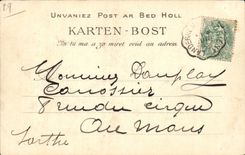 19
UNVANIEZ POST AR BED HOLL
KARTEN-BOST
An tu ma a zo miret evid an adres.
Monsieur
Carrossier
8 rue du cirque
Au Mans
Sarthe